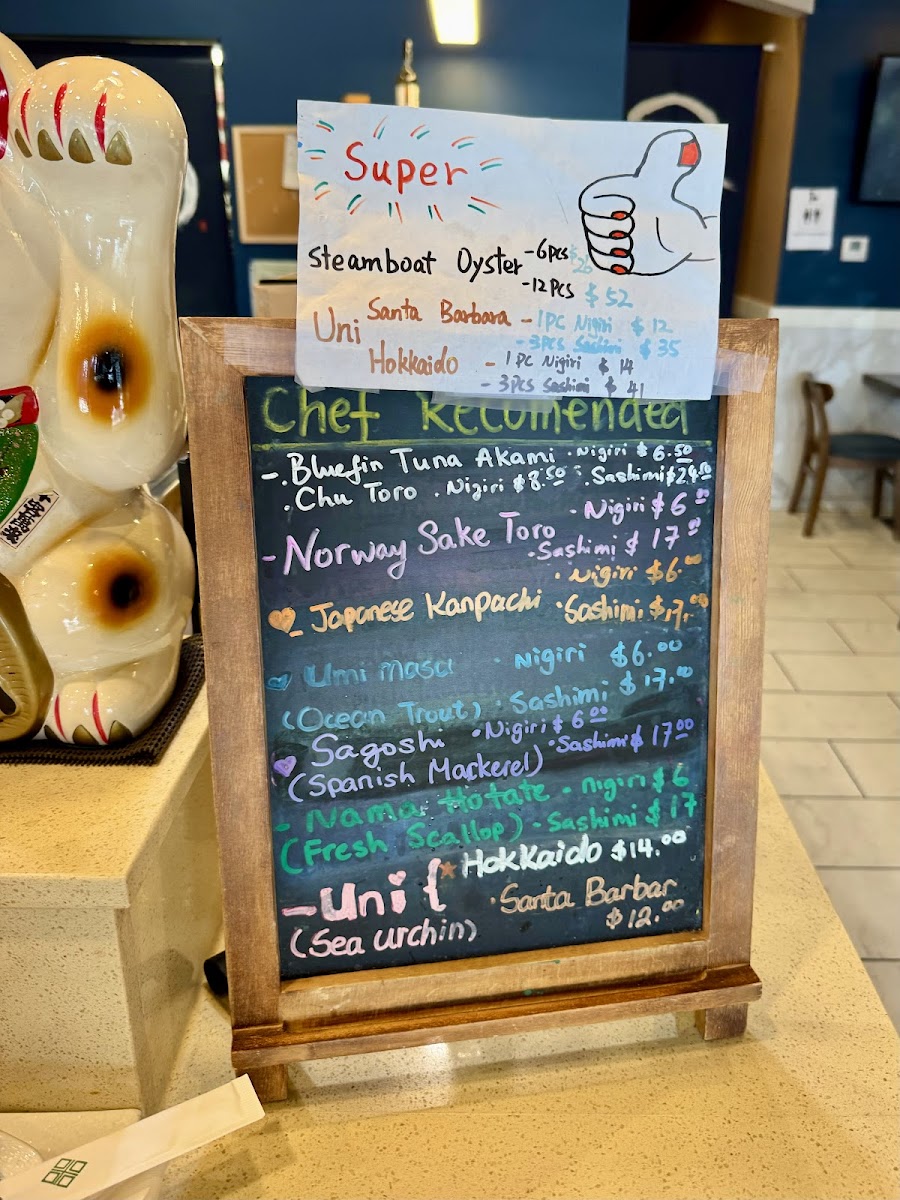 Super
Steamboat Oyster -6pcs $26
-12pcs $52
Uni Santa Barbara -1PC Nigiri $12
-3pcs Sashimi $35
Hokkaido -1PC Nigiri $14
-3pcs Sashimi $41
Chef Recomended
-.Bluefin Tuna Akami .Nigiri $6.50
.Chu Toro .Nigiri $8.50 .Sashimi $24.50
-Norway Sake Toro .Nigiri $6.00
.Sashimi $17.00
.Nigiri $6.00
Japanese Kanpachi .Sashimi $17.00
Umi Masu .Nigiri $6.00
(Ocean Trout) .Sashimi $17.00
Sagoshi .Nigiri $6.00
(Spanish Markerel) .Sashimi $17.00
-Nama Hotate -Nigiri $6
(Fresh Scallop) -Sashimi $17
-Uni { Hokkaido $14.00
.Santa Barbar
(Sea urchin) $12.00